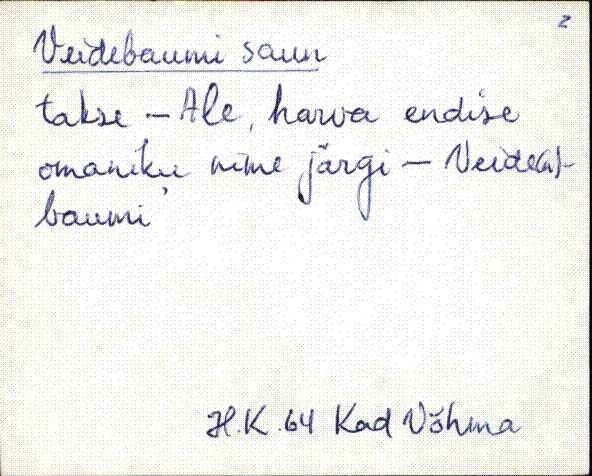 2
Veidebaumi saun
takse – Ale, harva endise
omaniku nime järgi – Veide(n)-
baumi
H.K. 64 Kad Võhma